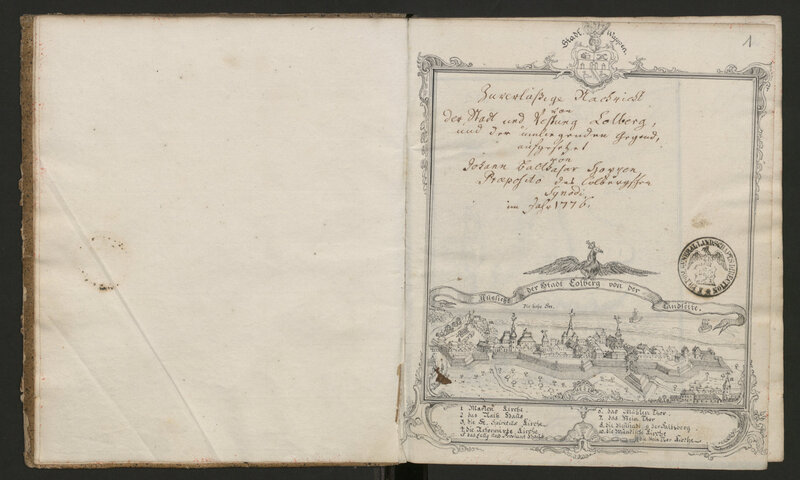 1
Stadt Wappen.
Zuverläßige Nachricht
von
der Stadt und Vestung Colberg,
und der umliegenden Gegend,
aufgesetzet
von
Johann Balthasar
Præposito des Colbergschen
Synodi
im Jahr 1776.
Aussicht der Stadt Colberg von der Landseite.
Die hohe See.
1. Marien Kirche
2. das Rath Haus
3. die St. Spiritus Kirche
4. die Reformirte Kirche
6. das Mühlen Thor.
7. das Stein Thor